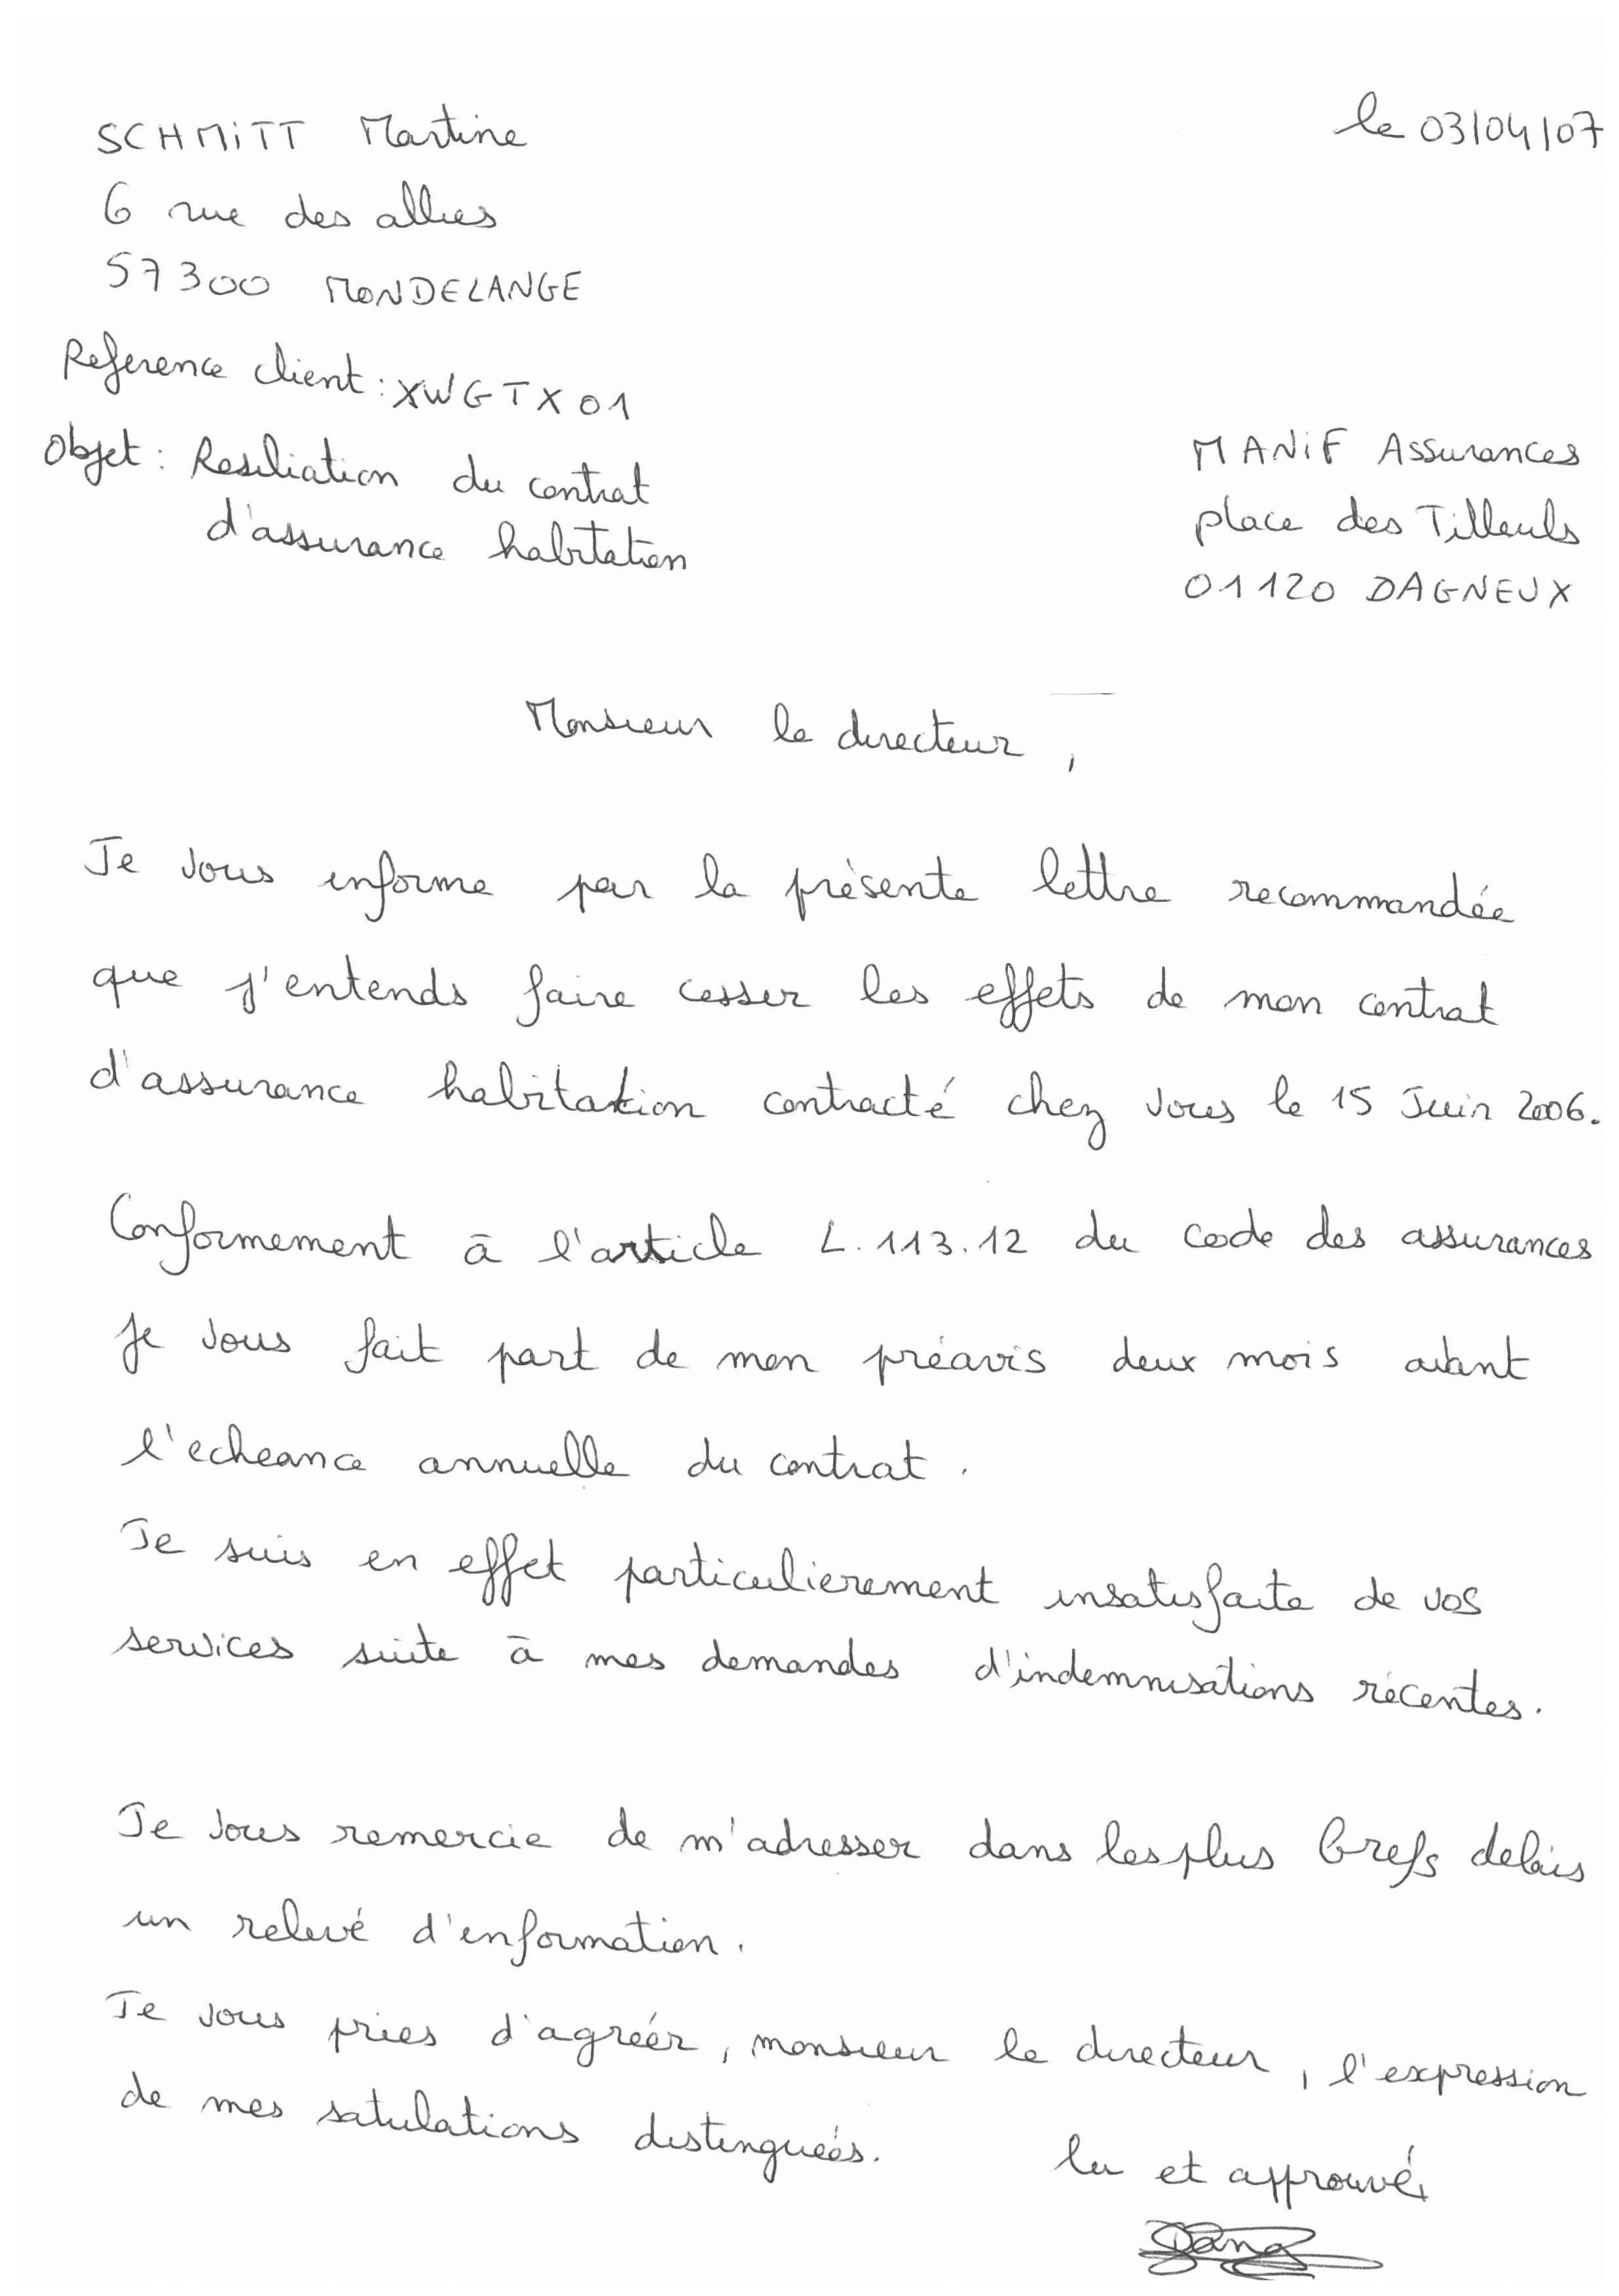 SCHMITT Martine
le 03/04/07
6 rue des allies
57300 MONDELANGE
Reference client : XWGTX01
Objet : Resiliation du contrat
d'assurance habitation
MANIF Assurances
place des Tilleuls
01120 DAGNEUX
Monsieur le directeur,
Je vous informe par la présente lettre recommandée
que j'entends faire cesser les effets de mon contrat
d'assurance habitation contracté chez vous le 15 Juin 2006.
Conformement à l'article L.113.12 du code des assurances
je vous fait part de mon préavis deux mois avant
l'echeance annuelle du contrat.
Je suis en effet particulierement insatisfaite de vos
services suite à mes demandes d'indemnisations récentes.
Je vous remercie de m'adresser dans les plus brefs delais
un relevé d'information.
Je vous pries d'agréér, monsieur le directeur, l'expression
de mes satulations distinguées.
lu et approuvé